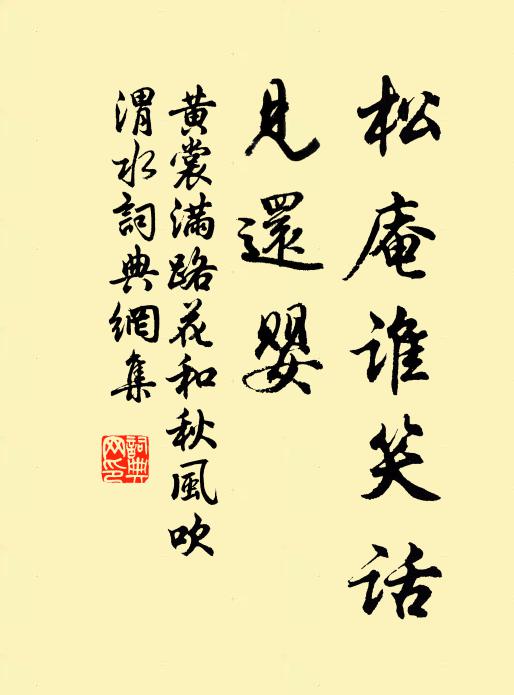 松庵谁笑话
見還嬰
黄裳满路花和秋風吹
渭水詞典網集
詞典网印